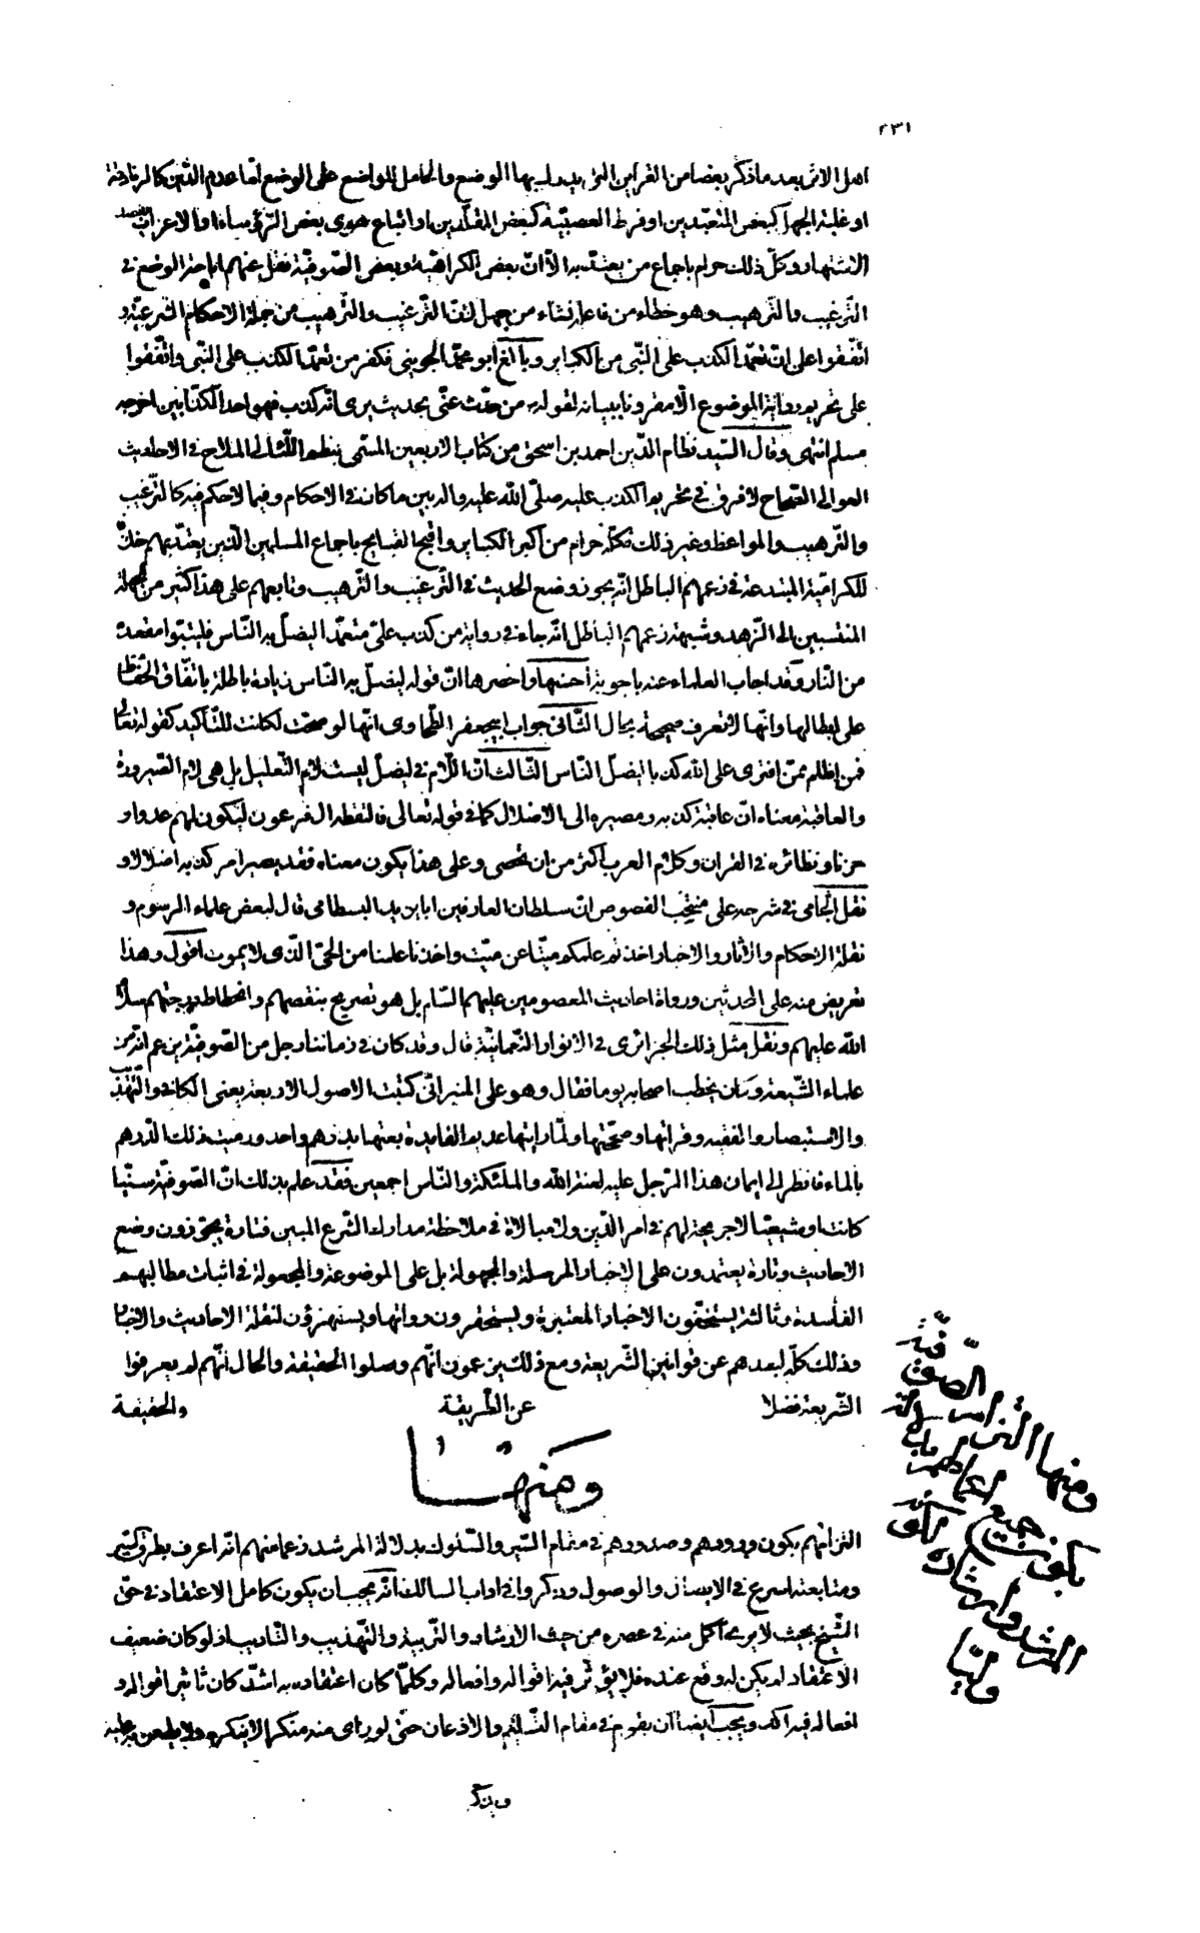 ٢٣١
اهل الاثر بعد ما ذكر بعضا من القراين التى يدرك بها الوضع والحامل للواضع على الوضع امّا عدم الدّين كالزنادقة
او غلبة الجهل كبعض المتعبّدين او فرط العصبيّة كبعض المقلّدين او اتباع هوى بعض الرّؤساء او الاغراب لقصد
الاشتهار وكلّ ذلك حرام باجماع من يعتدّ به الّا انّ بعض الكراميّة وبعض الصّوفيّة نقل عنهم اباحة الوضع فى
التّرغيب والتّرهيب وهو خطاء من فاعله نشاء من جهل لانّ التّرغيب والتّرهيب من جملة الاحكام الشرعيّة و
اتّفقوا على انّ تعمّد الكذب على النّبى من الكباير وبالغ ابو محمّد الجوينى فكفر من تعمّد الكذب على النّبى واتّفقوا
على تحريم رواية الموضوع الّا مقرونا ببيانه لقوله من حدّث عنّى بحديث يرى انّه كذب فهو احد الكذّابين اخرجه
مسلم انتهى وقال السّيد نظام الدّين احمد بن اسحق من كتاب الاربعين المسمّى بنظم اللّئالى الملاح فى الاحاديث
العوالى الصّحاح لا فرق فى تحريم الكذب عليه صلّى الله عليه واله بين ما كان فى الاحكام وفيما لا حكم فيه كالتّرغيب
والتّرهيب والمواعظ وغير ذلك فكلّه حرام من اكبر الكباير واقبح القبايح باجماع المسلمين الّذين يعتدّ بهم خلافا
للكراميّة المبتدعة فى زعمهم الباطل انّه يجوز وضع الحديث فى التّرغيب والتّرهيب وتابعهم على هذا كثير من جهلة
المنتسبين الى الزّهد وشبهة زعمهم الباطل انّه جاء فى رواية من كذب علىّ متعمّدا ليضلّ به النّاس فليتبوّا مقعده
من النّار وقد اجاب العلماء عنه باجوبة احسنها واخصرها انّ قوله ليضلّ به النّاس زيادة باطلة باتّفاق الحفّاظ
على ابطالها وانّها لا تعرف صحيحة بحال الثّانى جواب ابيجعفر الطّحاوى انّها لو صحّت لكانت للتّأكيد كقوله تعالى
فمن اظلم ممّن افترى على الله كذبا ليضلّ النّاس الثّالث انّ اللّام فى ليضلّ ليست لام التّعليل بل هى لام الصّيرورة
والعاقبة معناه انّ عاقبة كذبه ومصيره الى الاضلال كما فى قوله تعالى فالتقطه ال فرعون ليكون لهم عدوا و
حزنا ونظائره فى القران وكلام العرب اكثر من ان تحصى وعلى هذا يكون معناه فقد يصير امر كذبه اضلالا و
نقل الجامى فى شرحه على منتخب الفصوص انّ سلطان العارفين ابا يزيد البسطامى قال لبعض علماء الرسوم و
نقلة الاحكام والاثار والاخبار اخذتم علمكم ميّتا عن ميّت واخذنا علمنا من الحىّ الّذى لا يموت اقول وهذا
تعريض منه على المحدّثين ورواة احاديث المعصومين عليهم السّلام بل هو تصريح بنقصهم وانحطاط درجتهم سلام
الله عليهم ونقل مثل ذلك الجزائرى فى الانوار النّعمانيّة قال وقد كان فى زماننا رجل من الصّوفيّة يزعم انّه من
علماء الشّيعة وكان يخطب اصحابه يوما فقال وهو على المنبر انّى كتبت الاصول الاربعة يعنى الكافى والتّهذيب
والاستبصار والفقيه وقراتها وصحّحتها ولمّا رايتها عديم الفايدة بعتها بدرهم واحد ورميت ذلك الدّرهم
بالماء فانظر الى ايمان هذا الرّجل عليه لعنة الله والملئكة والنّاس اجمعين فقد علم بذلك انّ الصّوفيّة سنّيا
كانت او شيعيّا لا حريجة لهم فى امر الدّين ولا مبالاة فى ملاحظة مدارك الشّرع المبين فتارة يجوّزون وضع
الاحاديث وتارة يعتمدون على الاخبار المرسلة والمجهولة بل على الموضوعة والمجعولة فى اثبات مطالبهم
الفاسدة وثالثة يستخفّون الاخبار المعتبرة ويستحقرون رواتها ويستهزؤن لنقلة الاحاديث والاخبار
وذلك كلّه لبعدهم عن قوانين الشّريعة ومع ذلك يزعمون انّهم وصلوا الحقيقة والحال انّهم لم يعرفوا
الشّريعة فضلا عن الطّريقة والحقيقة
ومنها
التزامهم بكون ورودهم وصدورهم فى مقام السّير والسّلوك بدلالة المرشد زعما منهم انّه اعرف بطرق السّير
ومتابعته اسرع فى الايصال والوصول وذكروا فى اداب السالك انّه يجب ان يكون كامل الاعتقاد فى حقّ
الشّيخ بحيث لا يرى اكمل منه فى عصره من حيث الارشاد والتّربية والتّهذيب والتّاديب اذ لو كان ضعيف
الاعتقاد لم يكن له وقع عنده فلا يؤثّر فيه اقواله وافعاله وكلّما كان اعتقاده به اشدّ كان تاثير اقواله و
افعاله فيه اكد ويجب ايضا ان يقوم فى مقام التّسليم والاذعان حتّى لو راى منه منكرا لا ينكره ولا يطعن به عليه
ومنها التزامـ الصّوفيّة
بكون جميع اعمالهم
المرشد وارشاده
وذكر